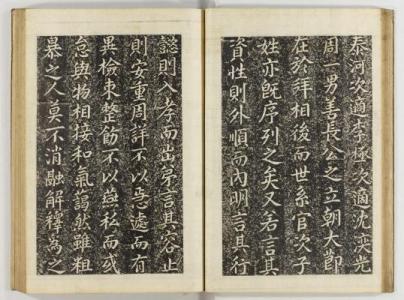 泰河次適李極次適沈奕光
周一男善長公之立朝大節
在於拜相後而世系官次子
姓亦既序列之矣又若言其
資性則外順而內明言其行
懿則入孝而出弟言其容止
則安重周詳不以惡遽而有
異檢束整飭不以燕私而或
怠與物相接和氣藹然雖粗
暴之人莫不消融解釋爲之